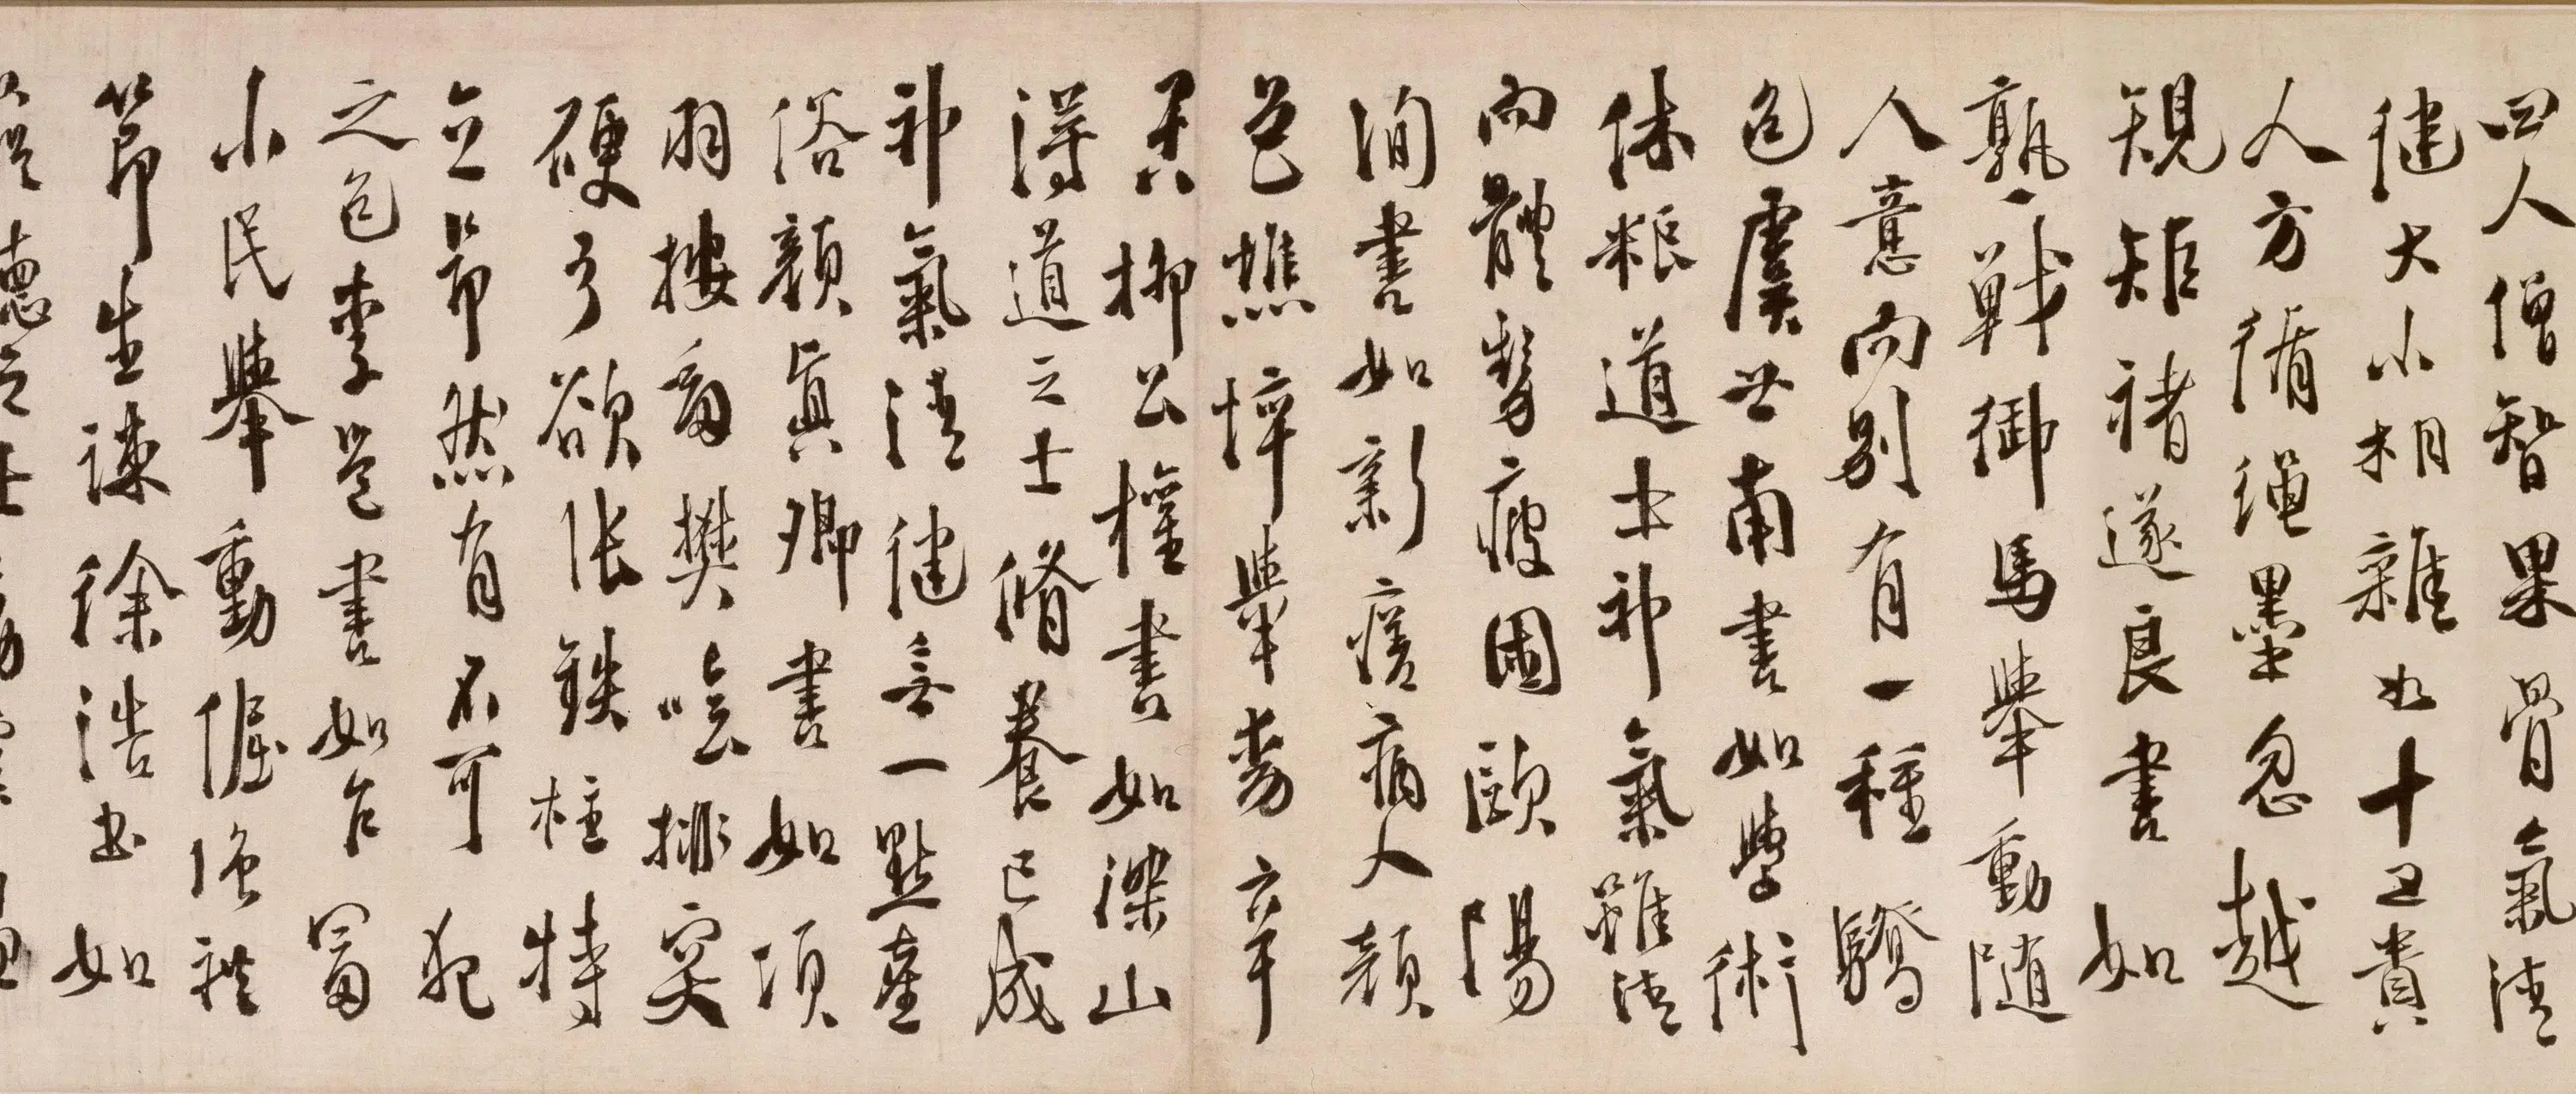 四人僧智果骨氣清
健大小相雜如十五貴
人方循繩墨忽越
規矩褚遂良書如
孰戰御馬舉動隨
人意而別有一種驕
色虞世南書如學術
休粮道士神氣雖清
而體疲困歐陽
詢書如新瘥病人顏
色憔悴舉辛
苦柳公權書如深山
得道之士脩養已成
神氣清健無一點塵
俗顏真卿書如項
羽按樊噲排突
硬弓欲張鐵柱特
立昂然有不可犯
之色李邕書如乍富
小民舉動倔強禮
節生疎徐浩書如
德之士